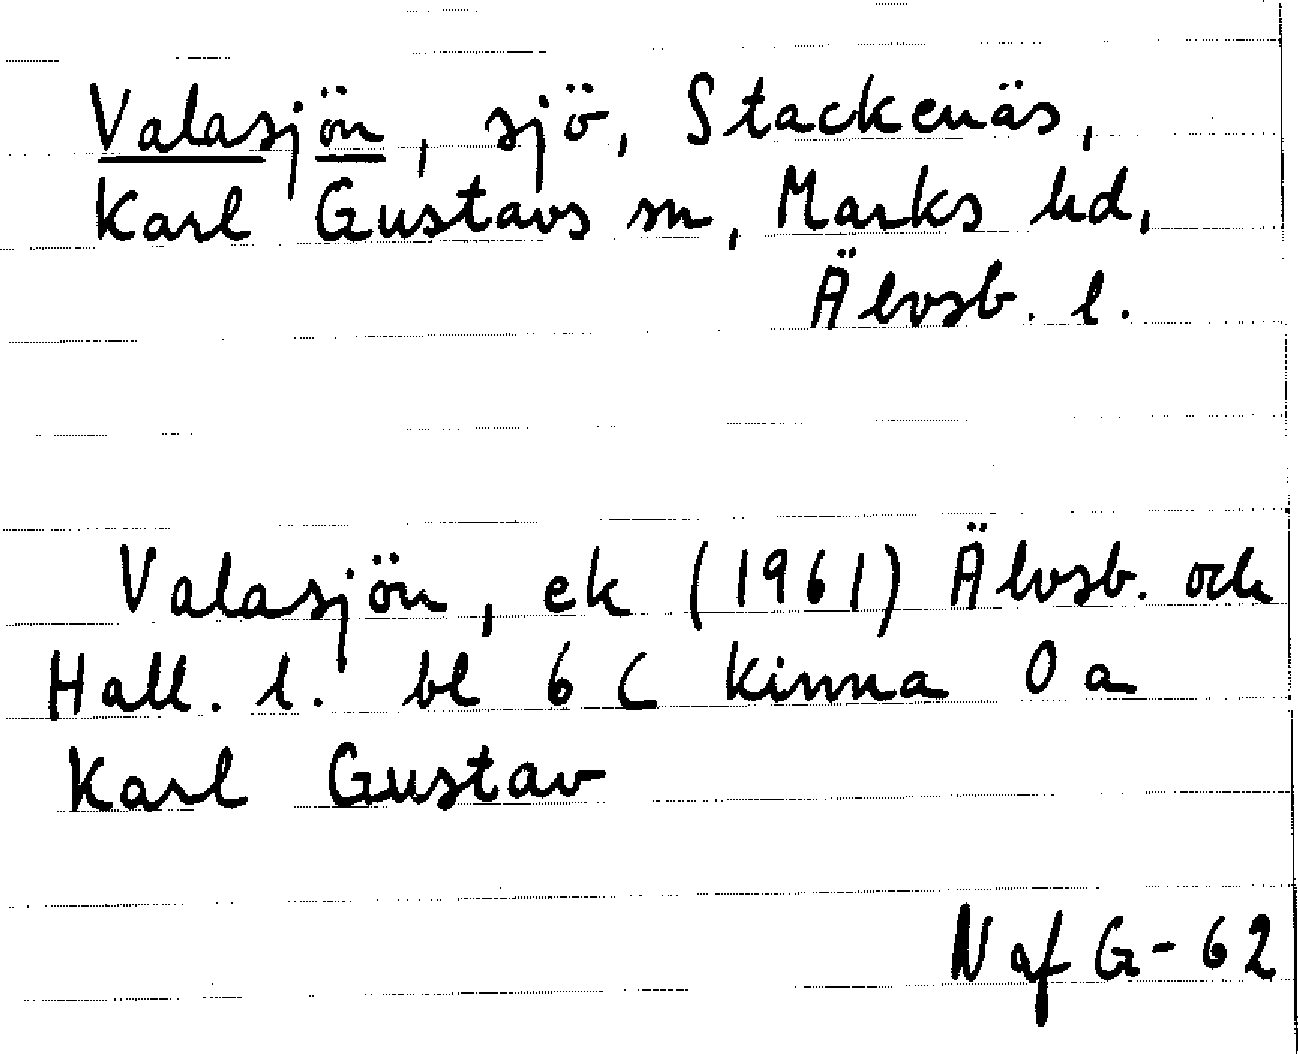 Valasjön, sjö, Stackenäs,
Karl Gustavs sn, Marks hd,
Älvsb. l.
Valasjön, ek (1961) Älvsb. och
Hall. l. bl 6 C Kinna O a
Karl Gustav
N af G-62